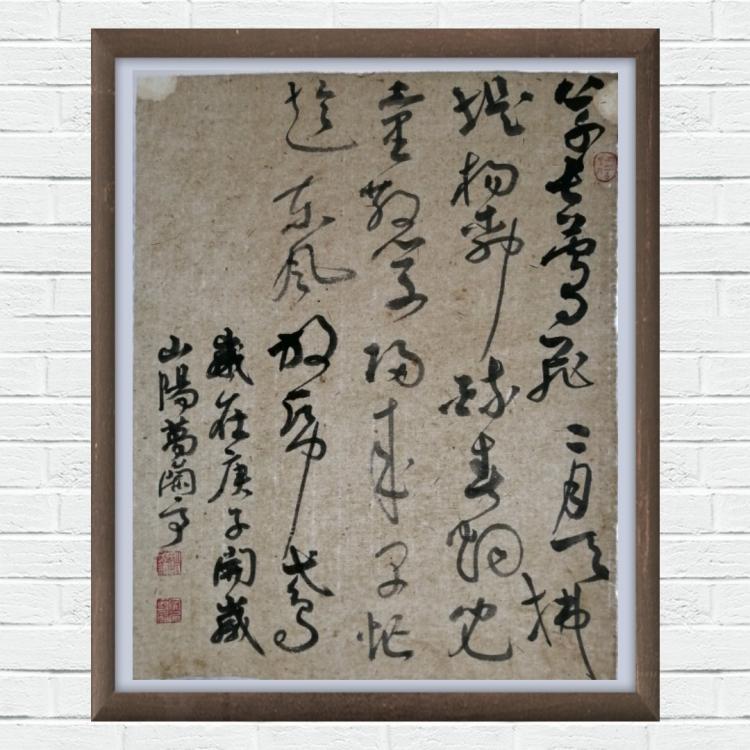 草長鶯飛二月天拂
堤楊柳醉春煙兒
童散學歸來早忙
趁東風放紙鳶
歲在庚子開歲
山陽